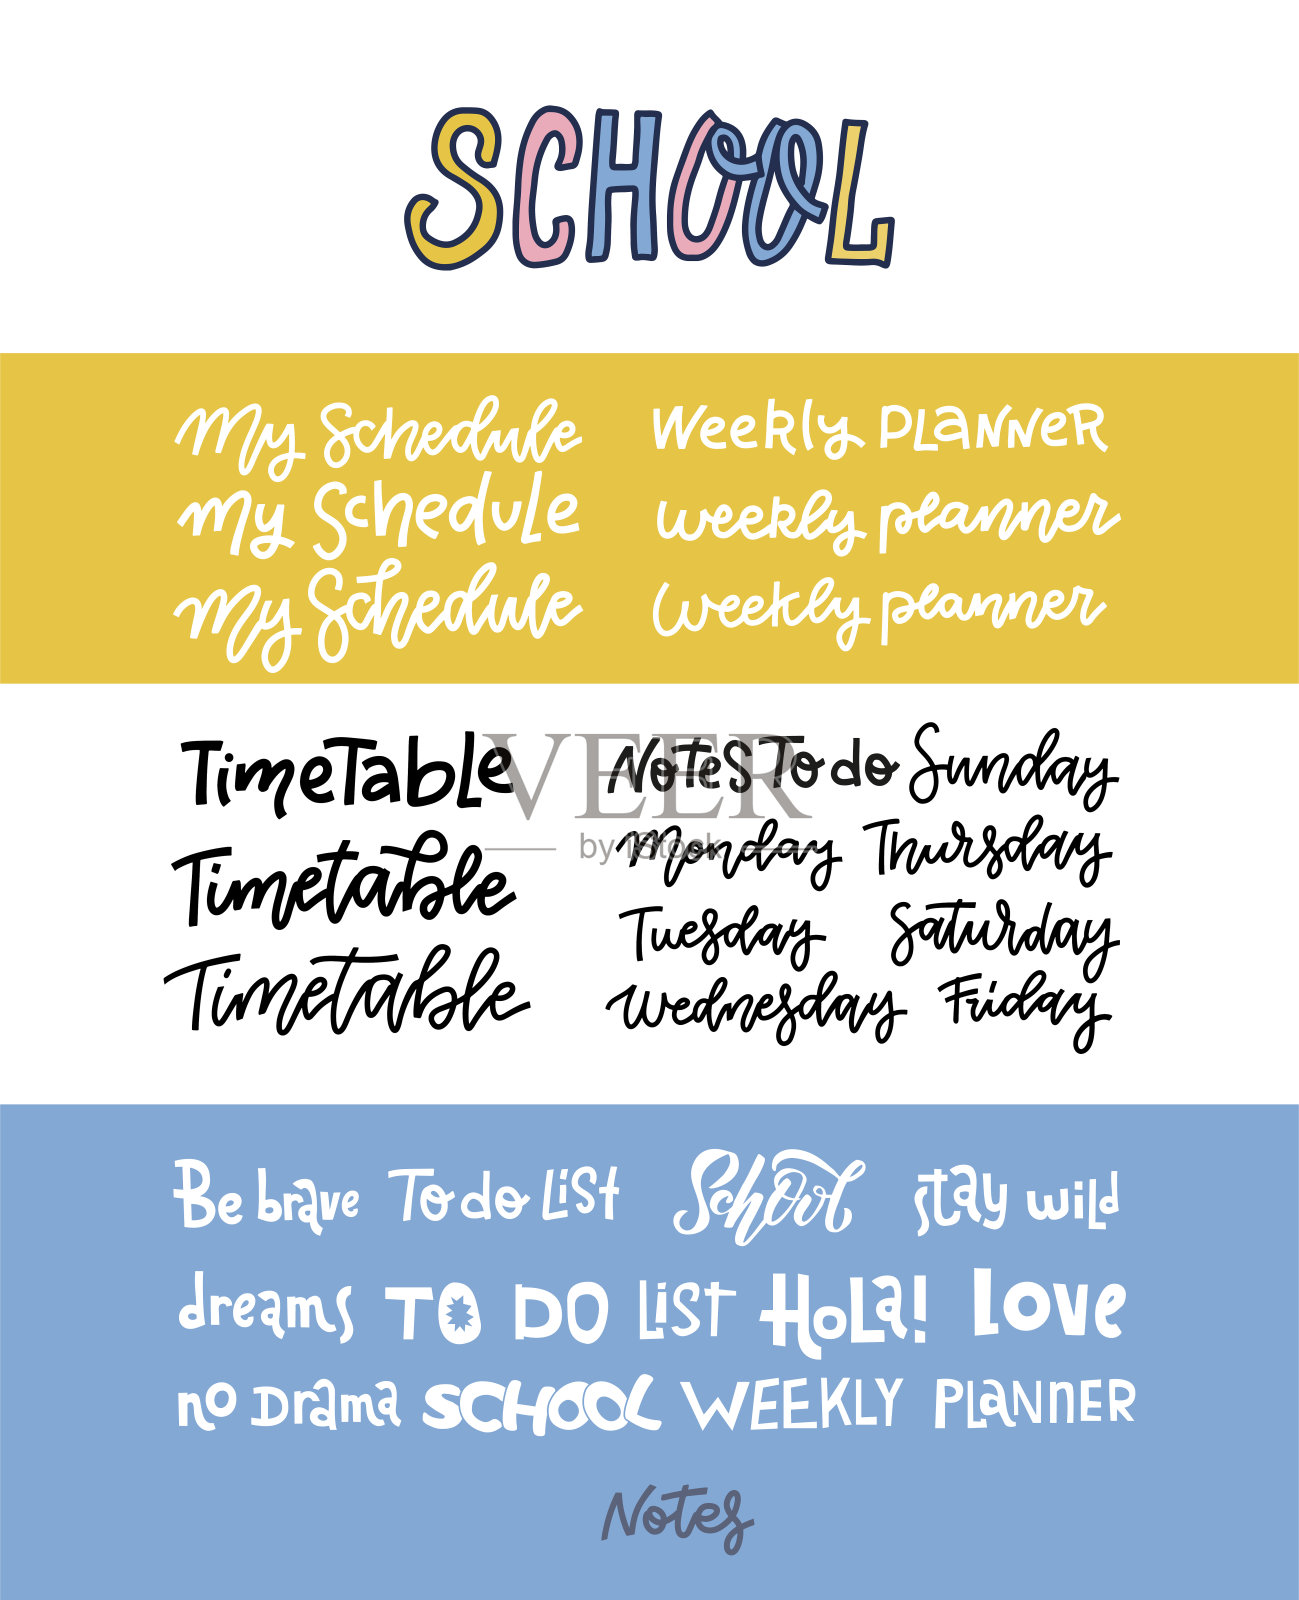 SCHOOL
My Schedule Weekly PLANNER
my Schedule weekly planner
my Schedule weekly planner
TimeTable Notes To do Sunday
VEER
by iStock
Monday Thursday
Timetable
Tuesday Saturday
Timetable
Wednesday Friday
Be brave To do List School stay wild
dreams TO DO LIST HoLa! Love
no Drama SCHOOL WEEKLY PLaNNER
Notes